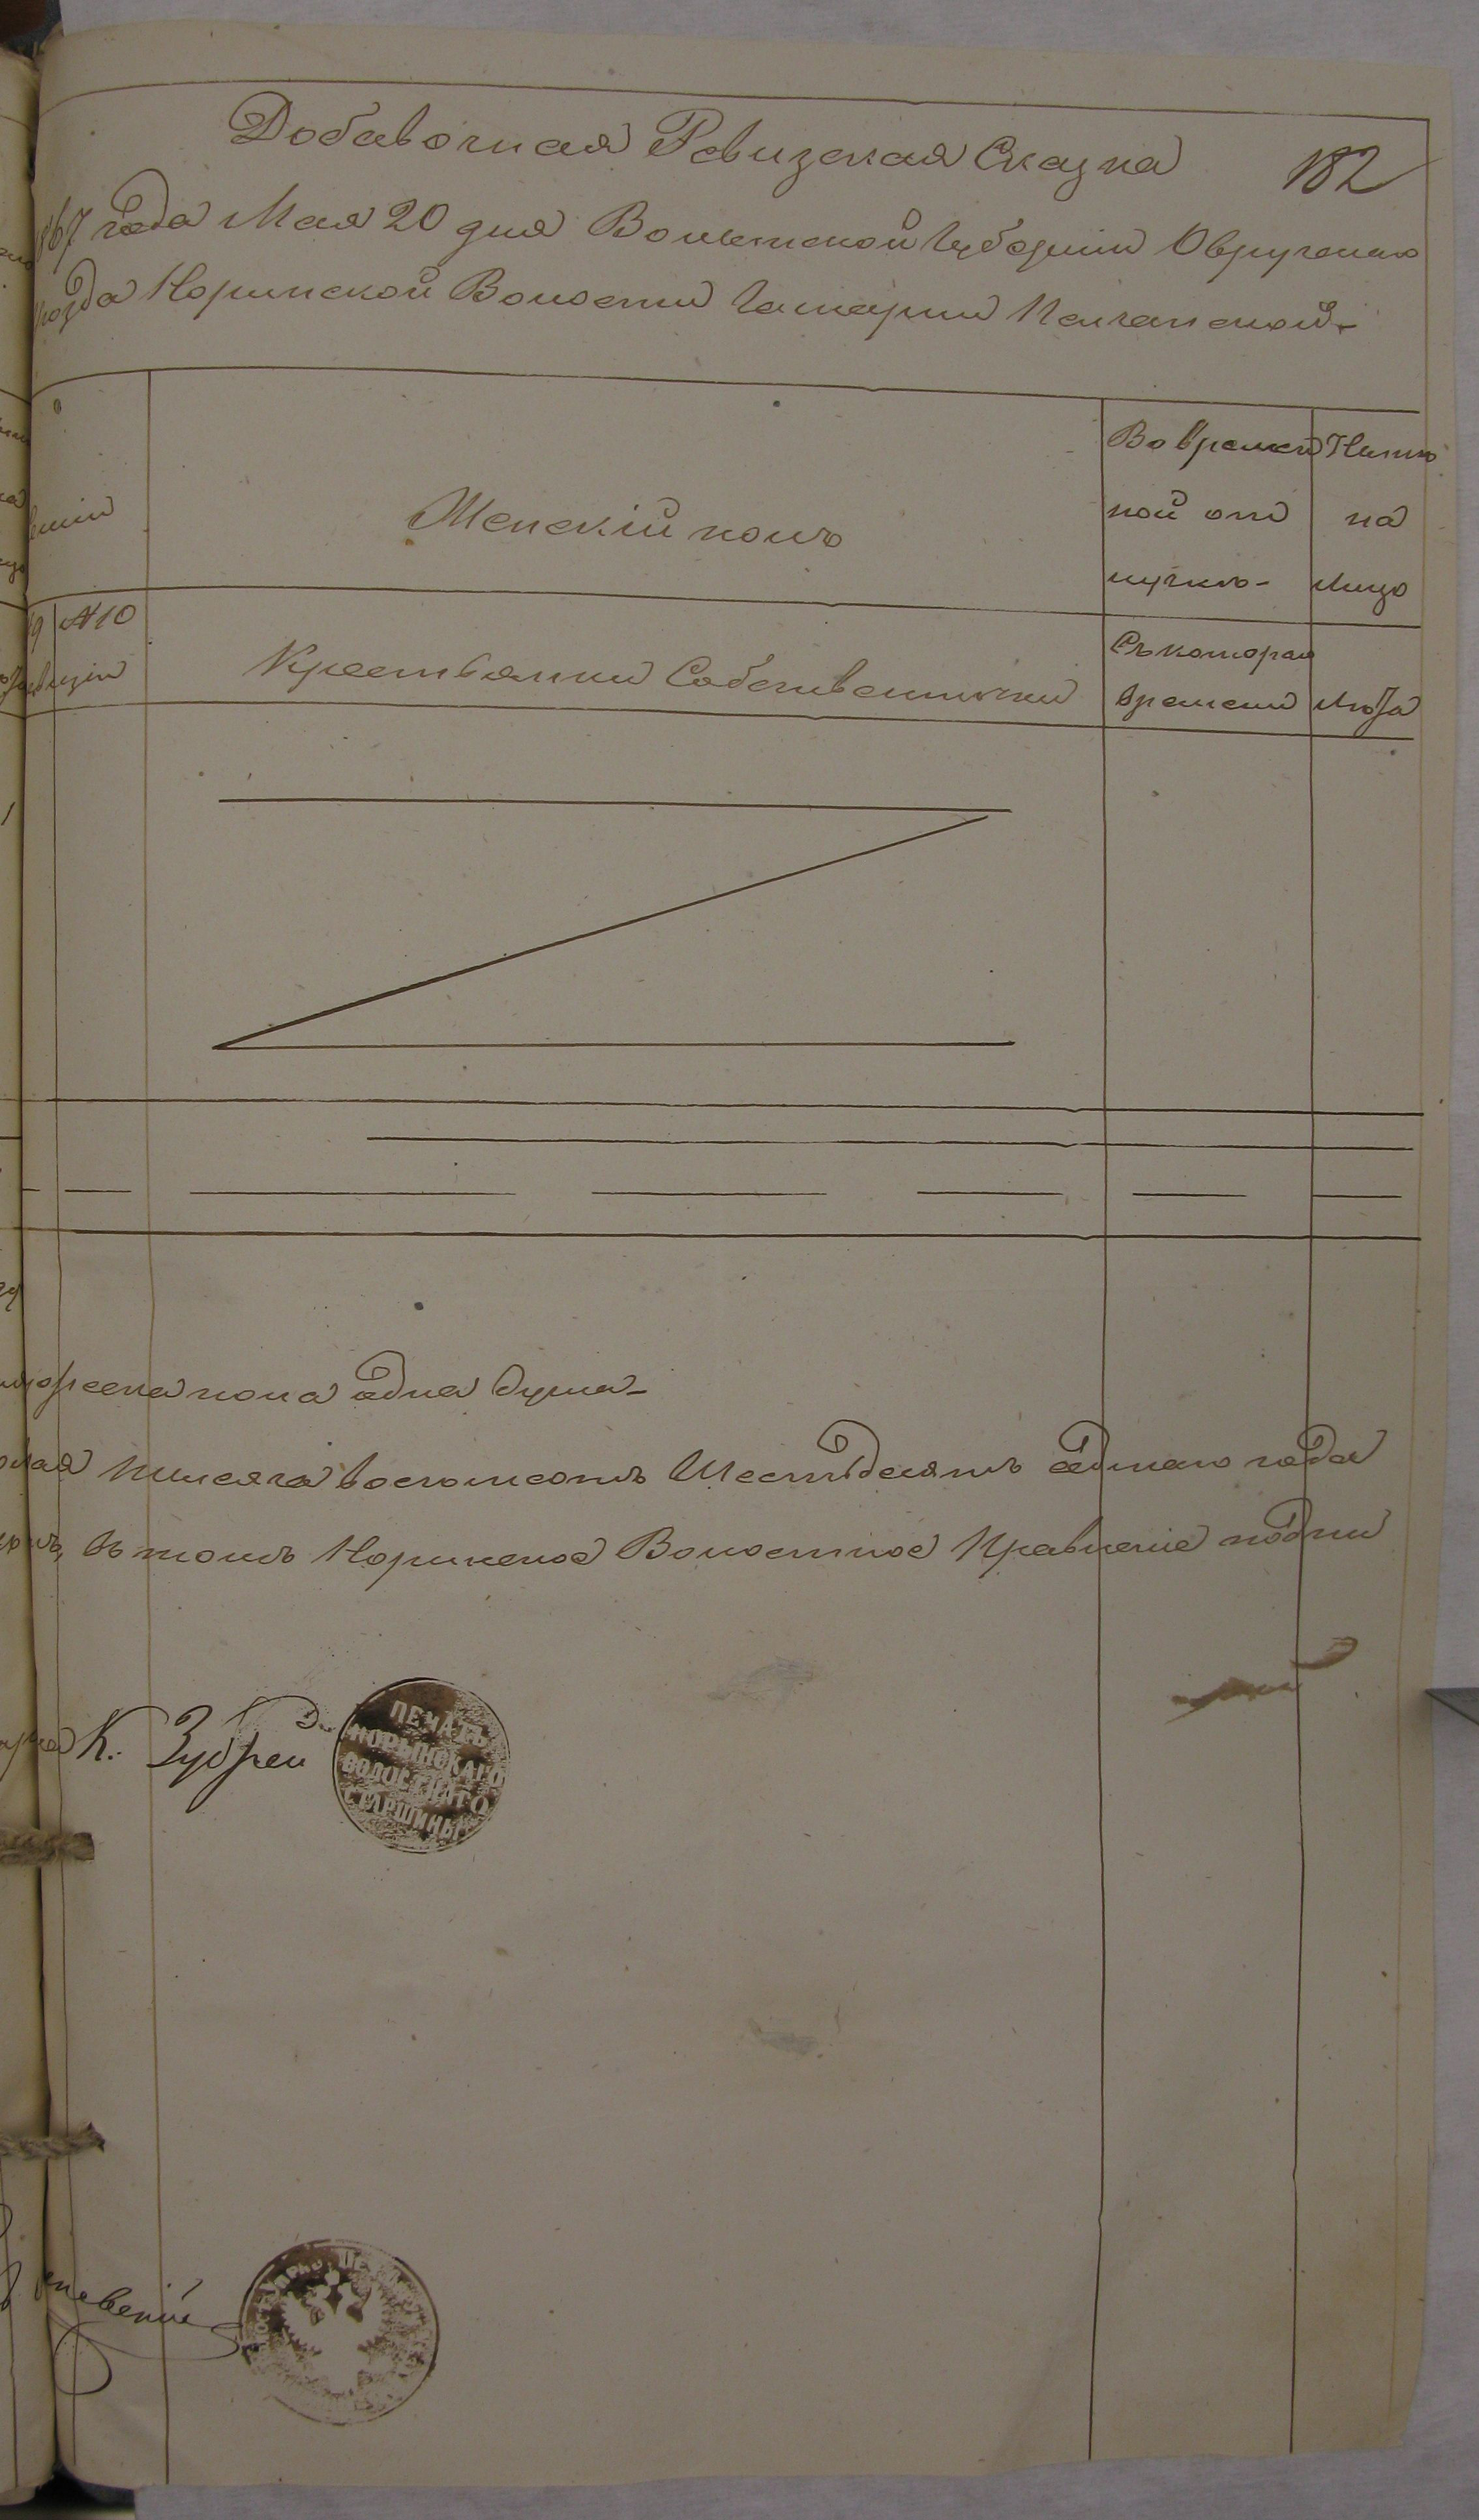 Добавочная Ревизская Сказка 182
1867 года Мая 20 дня Волынской Губернии Овручскаго
уезда Норинской Волости
Женскій полъ
Во времен
ной отлучкѣ-
Нынѣ на лицо
№ 10
ревизіи
Крестьянки Собственнички
Съ котораго времени
Лѣта
женска пола одна душа-
тысяча восемсотъ Шестьдесятъ седмаго года
въ томъ Норинское Волостное Правленіе подпи
К. Зубрей
ПЕЧАТЬ
НОРЫНСКАГО
ВОЛОСТНАГО
СТАРШИНЫ